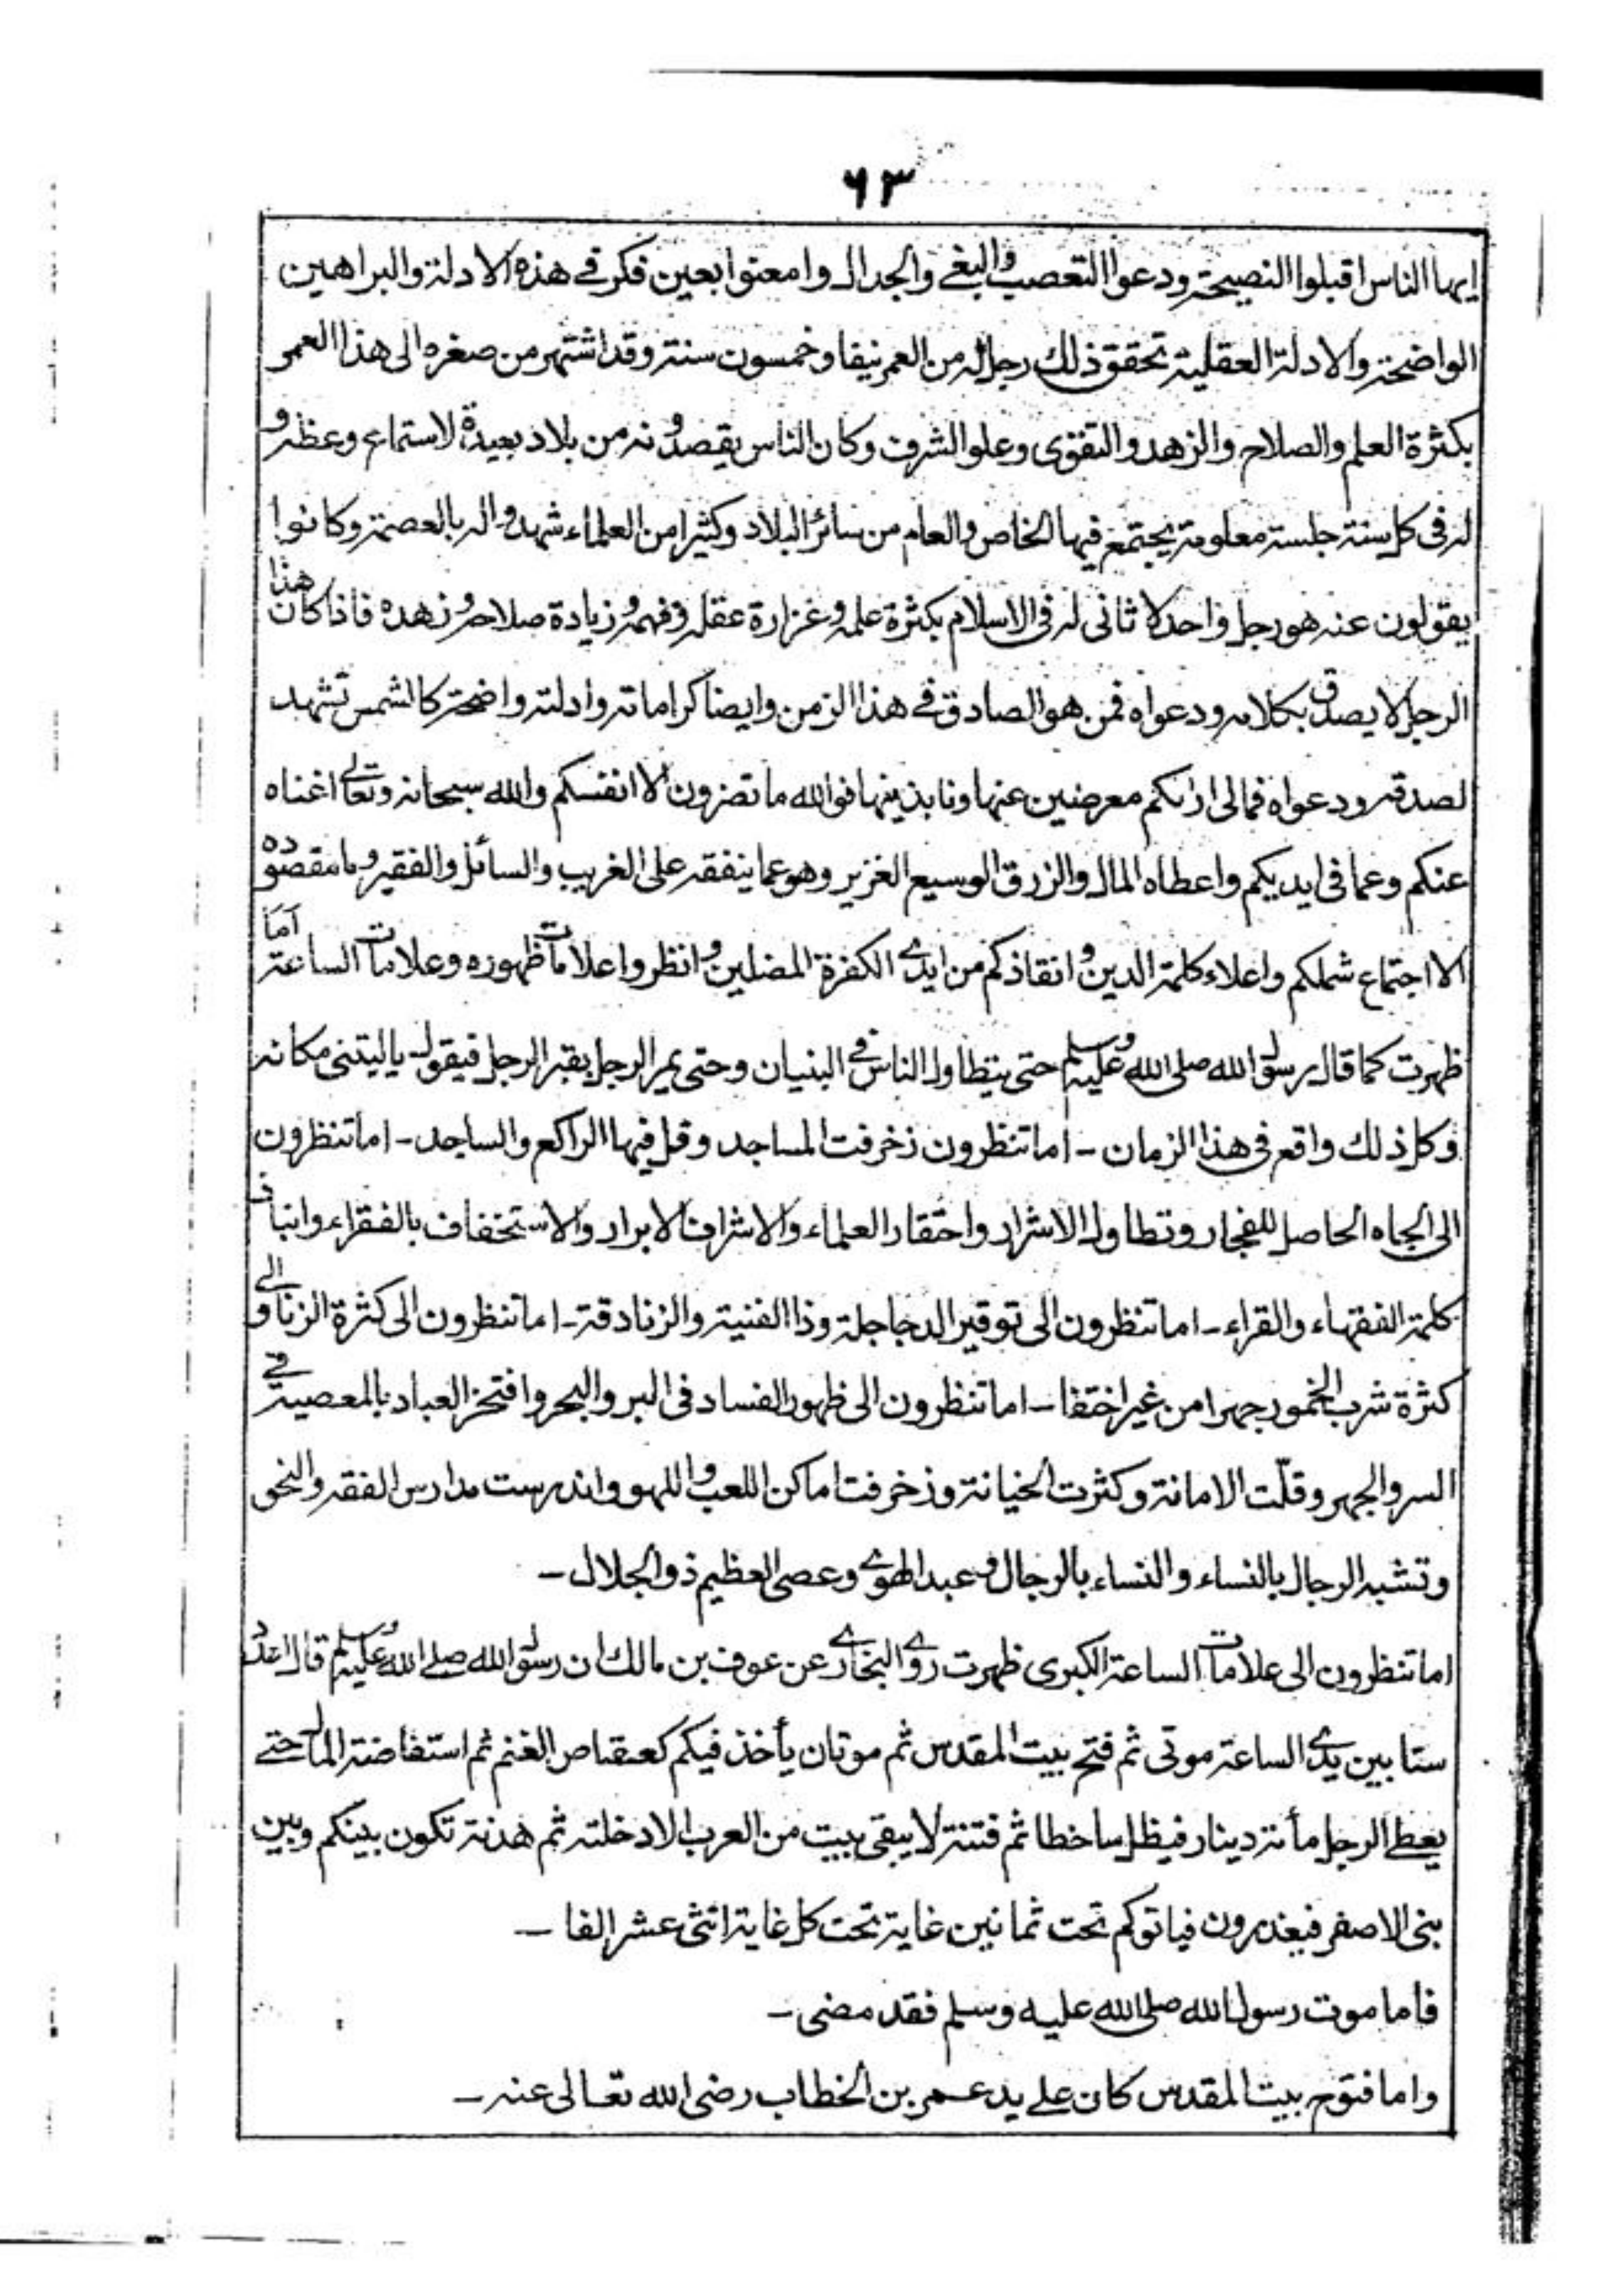 ٦٣
ايها الناس اقبلوا النصيحة ودعوا التعصب والبغي والجدال وامعنوا بعين فكر في هذه الادلة والبراهين
الواضحة والادلة العقلية تحقق ذلك رجل له من العمر نيفا وخمسون سنة وقد اشتهر من صغره الى هذا العمر
بكثرة العلم والصلاح والزهد والتقوى وعلو الشرف وكان الناس يقصدونه من بلاد بعيدة لاستماع وعظه و
له في كل سنة جلسة معلومة يجتمع فيها الخاص والعام من سائر البلاد وكثيرا من العلماء شهدوا له بالعصمة وكانوا
يقولون عنه هو رجل واحد لا ثاني له في الاسلام بكثرة علمه وغزارة عقله وفهمه وزيادة صلاحه وزهده فاذا كان هذا
الرجل لا يصدق بكلامه ودعواه فمن هو الصادق في هذا الزمن وايضا كراماته وادلته واضحة كالشمس تشهد
لصدقه ودعواه فمالي اراكم معرضين عنها ونابذينها فوالله ما تضرون الا انفسكم والله سبحانه وتعالى اغناه
عنكم وعما في ايديكم واعطاه المال والرزق الوسيع الغزير وهو عما ينفقه على الغريب والسائل والفقير وما مقصوده
الا اجتماع شملكم واعلاء كلمة الدين وانقاذكم من ايدي الكفرة المضلين وانظروا علامات ظهوره وعلامات الساعة اما
ظهرت كما قال رسول الله صلى الله عليه وسلم حتى يتطاول الناس في البنيان وحتى يمر الرجل بقبر الرجل فيقول ياليتني مكانه
وكل ذلك واقع في هذا الزمان - اما تنظرون زخرفت المساجد وقل فيها الراكع والساجد - اما تنظرون
الى الجاه الحاصل للفجار وتطاول الاشرار واحتقار العلماء والاشراف الابرار والاستخفاف بالفقراء وانباذ
كلمة الفقهاء والقراء - اما تنظرون الى توقير الدجاجلة وذا الفنية والزنادقة - اما تنظرون الى كثرة الزنا والى
كثرة شرب الخمور جهرا من غير اختفا - اما تنظرون الى ظهور الفساد في البر والبحر وافتخر العباد بالمعصية في
السر والجهر وقلّت الامانة وكثرت الخيانة وزخرفت اماكن اللعب واللهو واندرست مدارس الفقه والنحو
وتشبه الرجال بالنساء والنساء بالرجال وعبد الهوى وعصى العظيم ذو الجلال -
اما تنظرون الى علامات الساعة الكبرى ظهرت روى البخاري عن عوف بن مالك ان رسول الله صلى الله عليه وسلم قال اعدد
ستا بين يدي الساعة موتي ثم فتح بيت المقدس ثم موتان يأخذ فيكم كعقاص الغنم ثم استفاضة المال حتى
يعطى الرجل مأتة دينار فيظل ساخطا ثم فتنة لا يبقى بيت من العرب الا دخلته ثم هدنة تكون بينكم وبين
بني الاصفر فيغدرون فياتوكم تحت ثمانين غاية تحت كل غاية اثنى عشر الفا -
فاما موت رسول الله صلى الله عليه وسلم فقد مضى -
واما فتوح بيت المقدس كان على يد عمر بن الخطاب رضى الله تعالى عنه -